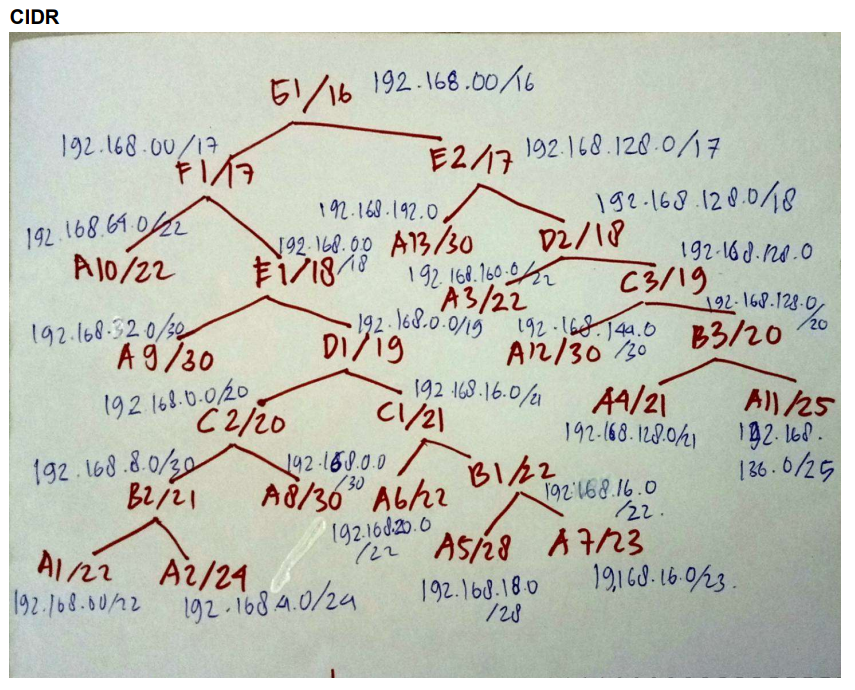 CIDR
G1/16 192.168.00/16
192.168.00/17
F1/17
E2/17 192.168.128.0/17
192.168.64.0/22
A10/22
192.168.0.0
E1/18 /18
192.168.192.0
A13/30
192.168.128.0/18
D2/18
192.168.160.0/22
A3/22
192.168.128.0
C3/19
192.168.32.0/30
A9/30
192.168.0.0/19
D1/19
192.168.144.0
A12/30 /30
192.168.128.0
/20
B3/20
192.168.0.0/20
C2/20
192.168.16.0/21
C1/21
A4/21
192.168.128.0/21
A11/25
192.168.
136.0/25
192.168.8.0/30
B2/21
192.168.0.0
/30
A8/30
A6/22
192.168.20.0
/22
B1/22
192.168.16.0
/22.
A1/22
192.168.00/22
A2/24
192.168.4.0/24
A5/28
192.168.18.0
/28
A7/23
19,168.16.0/23.